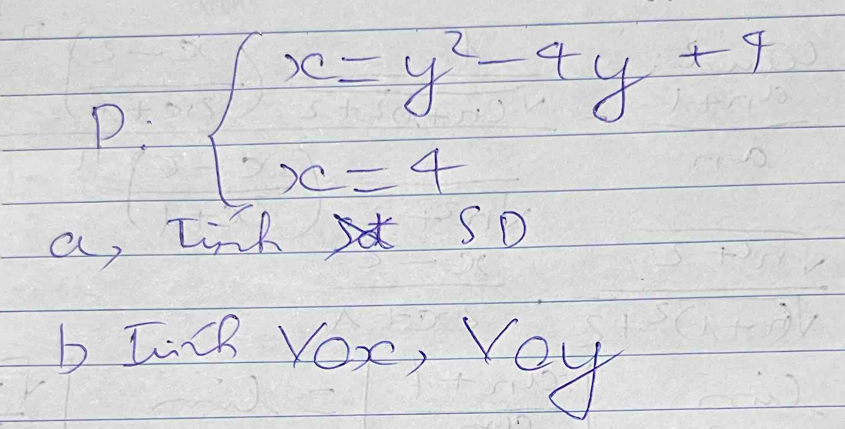 D: { x = y² - 4y + 4
x = 4
a, Tính SD
b Tính VOx, VOy